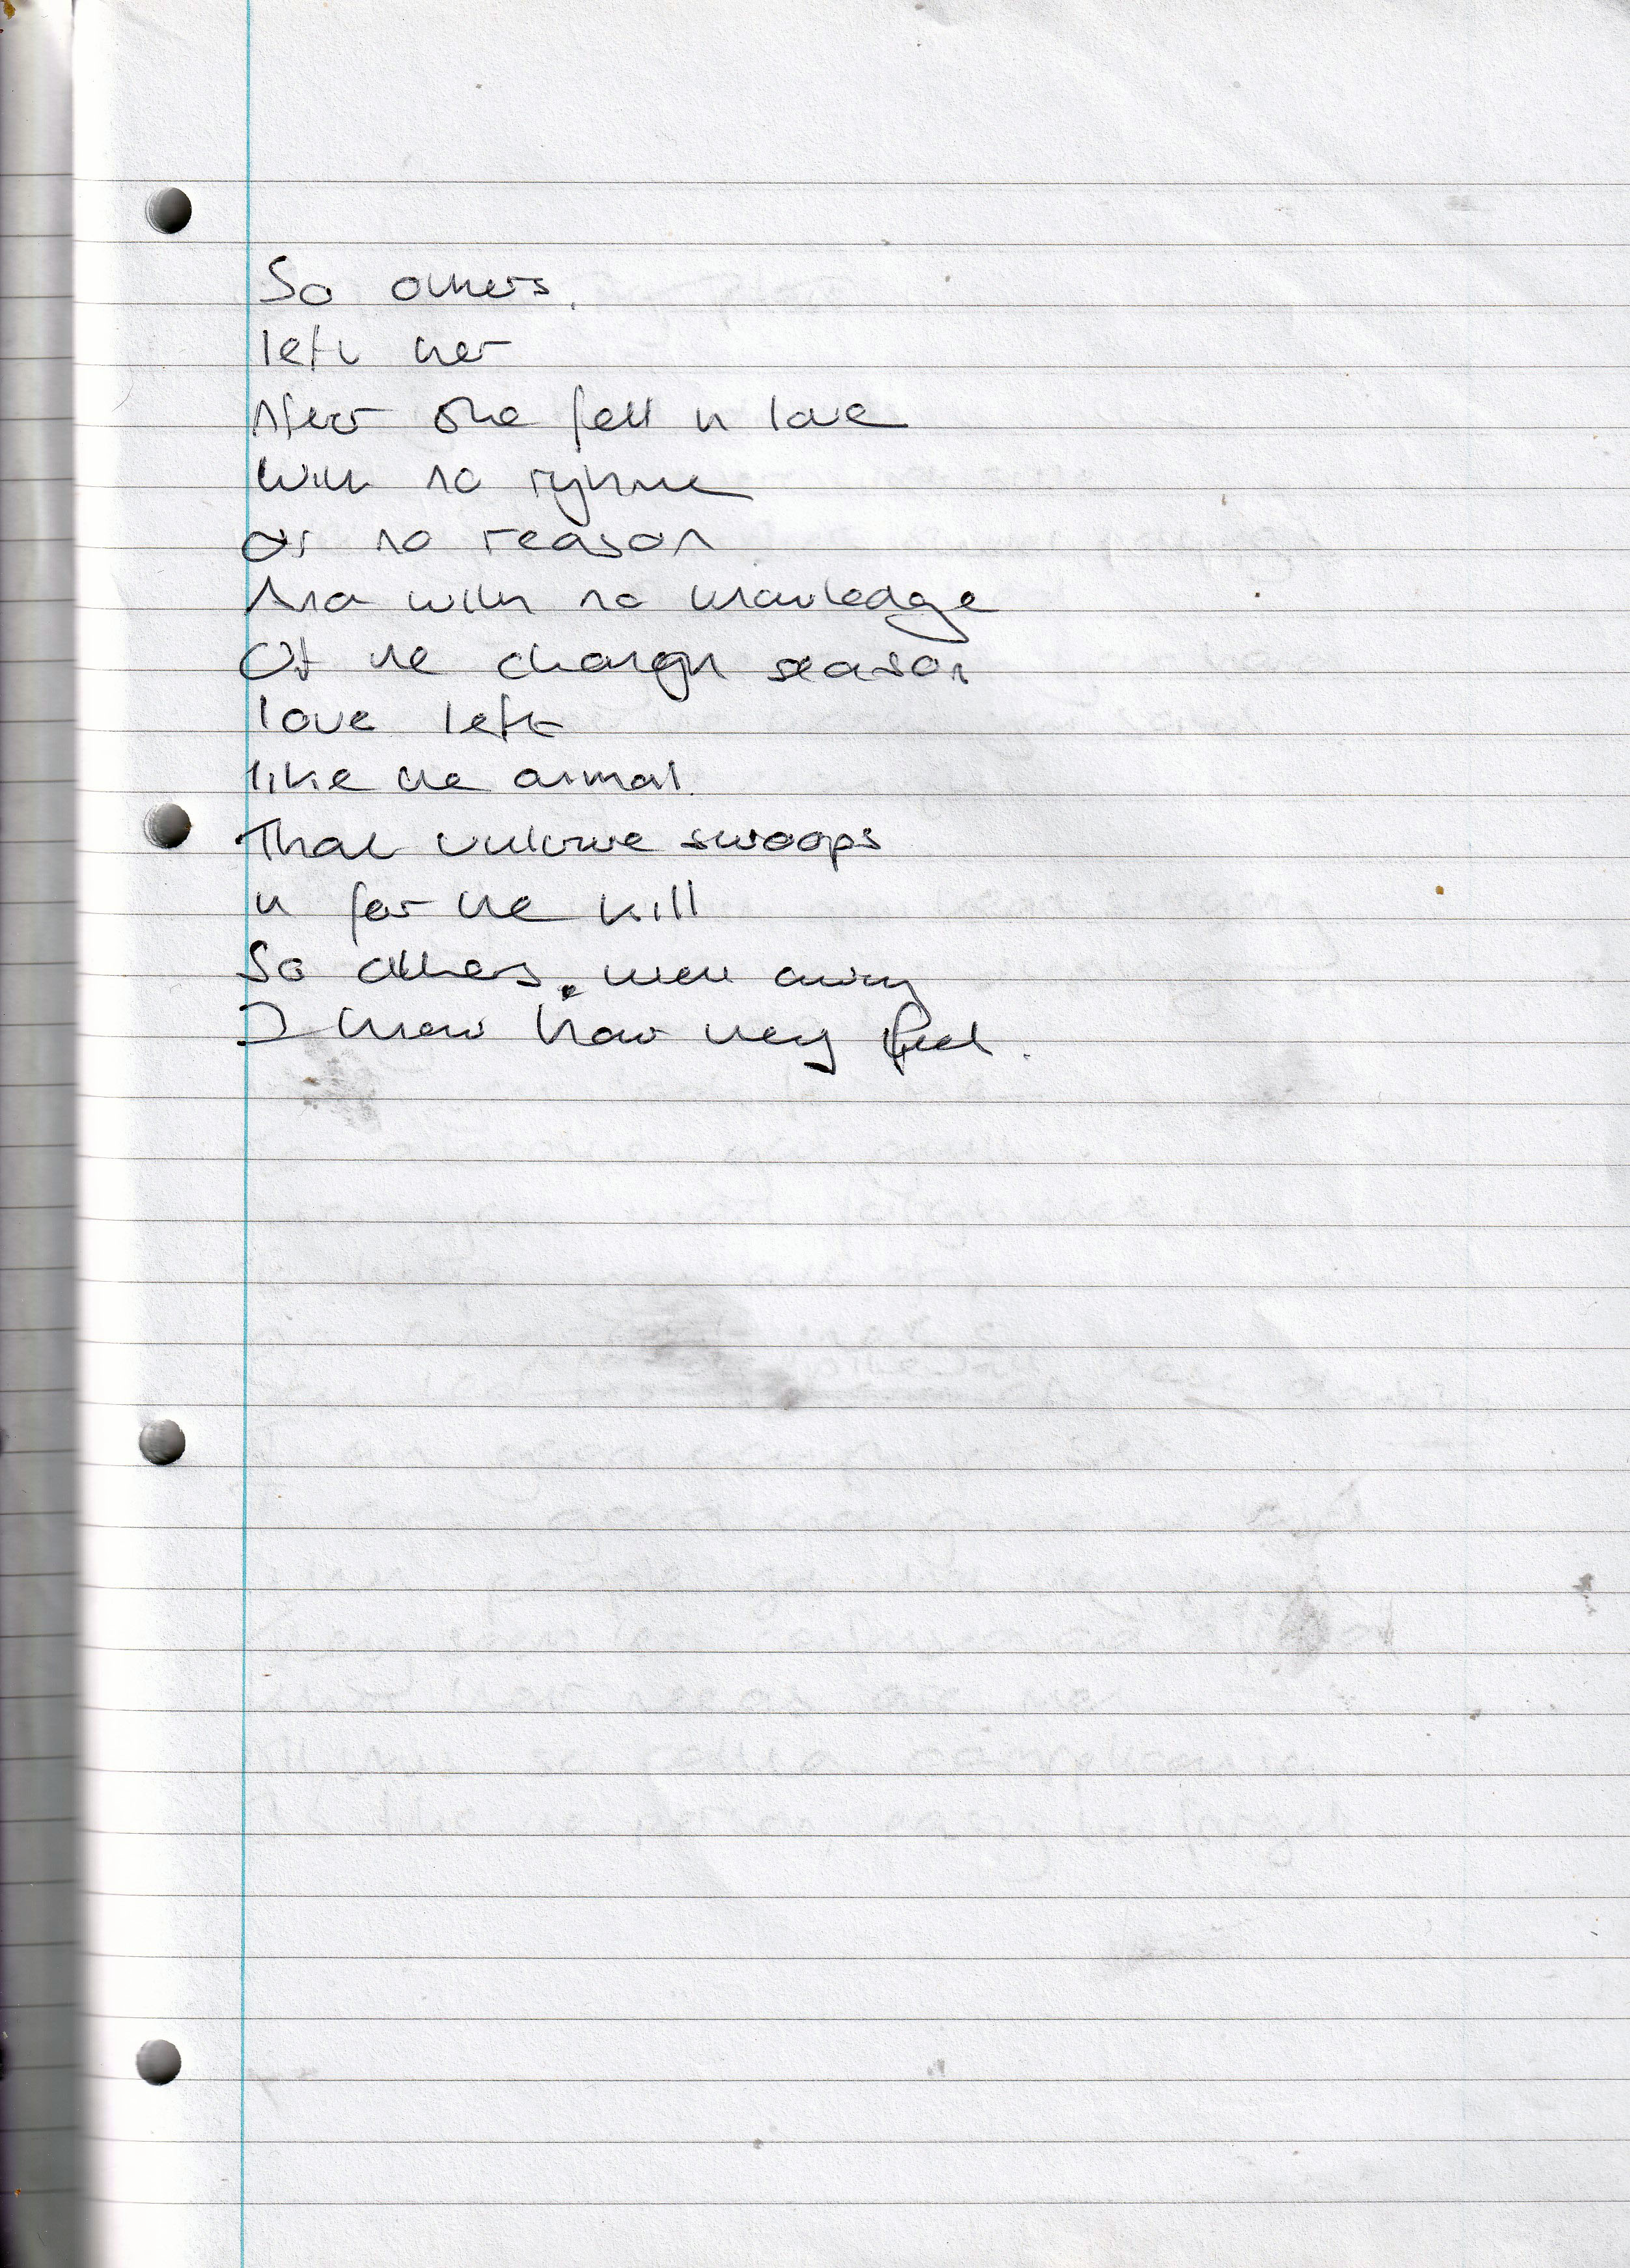 So others.
left her
After she fell in love
With no ryhme
or no reason
And with no knowledge
Of the changin season
love left
like the animal
That vulture swoops
in for the kill
So others. went away
I know how they feel.